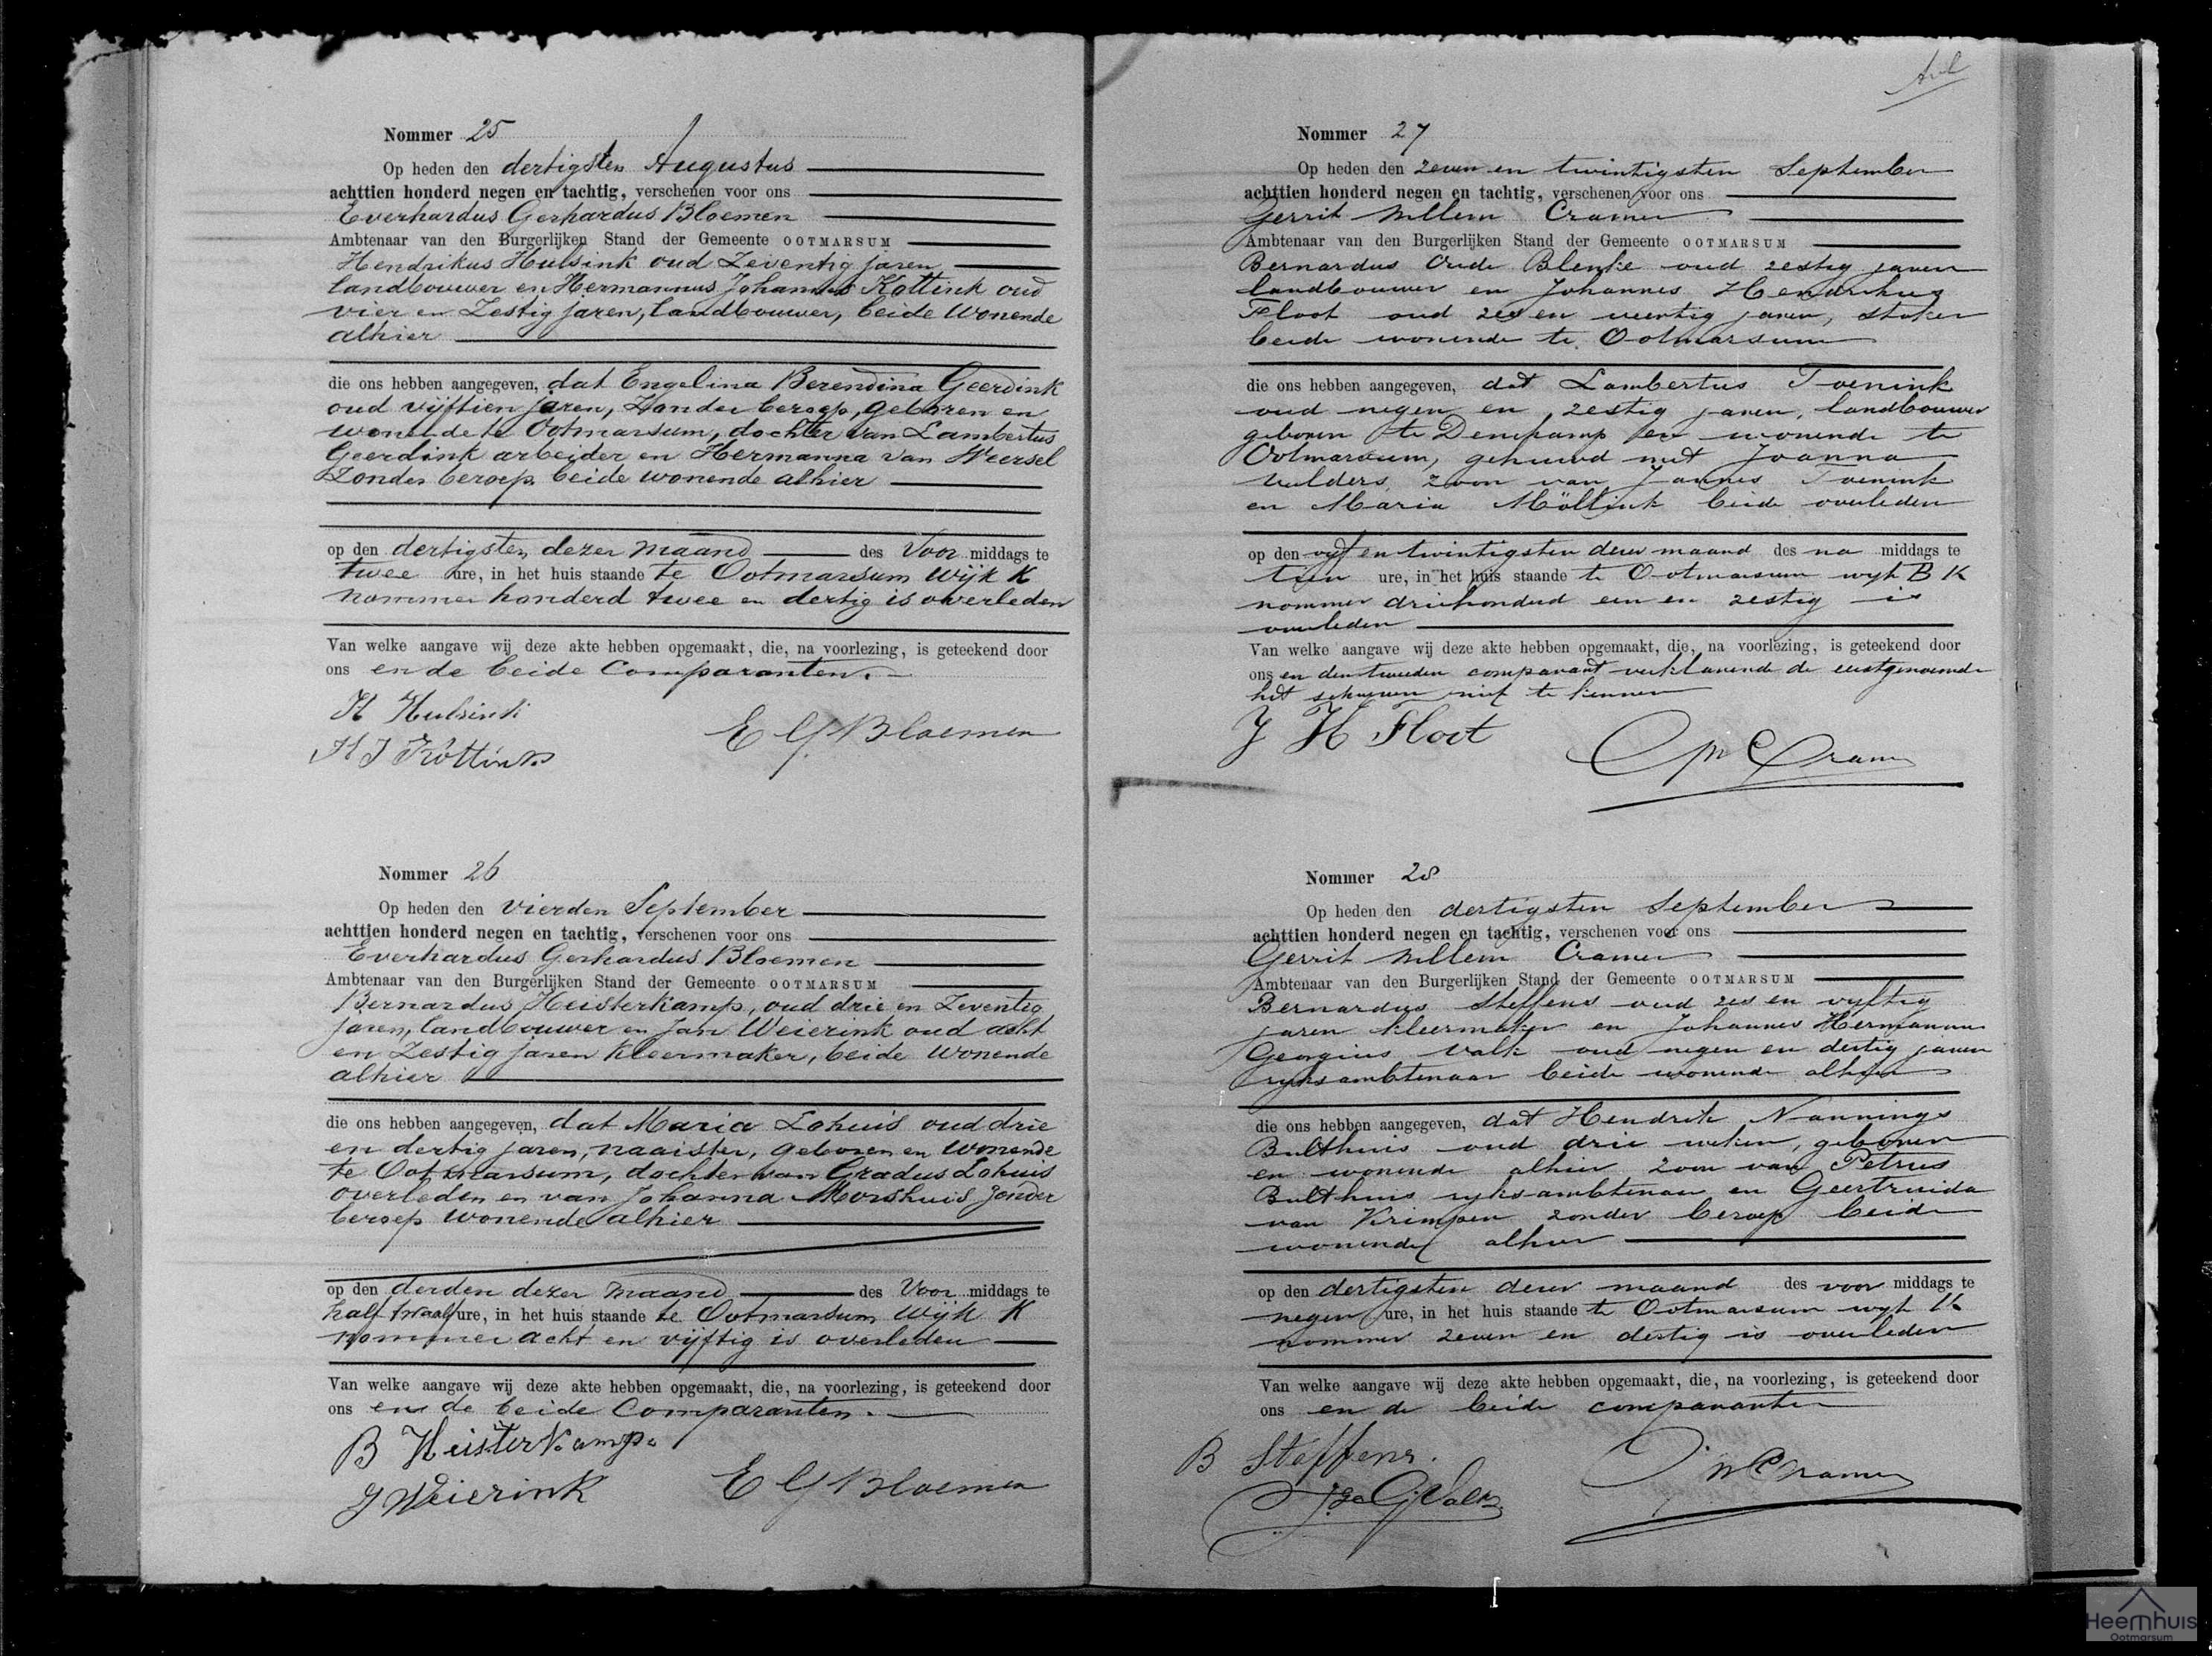 Nommer 25
Op heden den dertigsten Augustus
achttien honderd negen en tachtig, verschenen voor ons
Everhardus Gerhardus Bloemen
Ambtenaar van den Burgerlijken Stand der Gemeente OOTMARSUM
Hendrikus Hulsink oud Zeventig jaren
landbouwer en Hermannus Johannes Kottink oud
vier en Zestig jaren, landbouwer, beide Wonende
alhier
die ons hebben aangegeven, dat Engelina Berendina Geerdink
oud vijftien jaren, Zonder beroep, geboren en
wonende te Ootmarsum, dochter van Lambertus
Geerdink arbeider en Hermanna van Weersel
Zonder beroep beide wonende alhier
op den dertigsten dezer maand des Voor middags te
twee ure, in het huis staande te Ootmarsum Wijk K
nommer honderd twee en dertig is overleden
Van welke aangave wij deze akte hebben opgemaakt, die, na voorlezing, is geteekend door
ons en de beide Comparanten.
H Hulsink
H J Kottink
E G Bloemen
Nommer 26
Op heden den vierden September
achttien honderd negen en tachtig, verschenen voor ons
Everhardus Gerhardus Bloemen
Ambtenaar van den Burgerlijken Stand der Gemeente OOTMARSUM
Bernardus Heisterkamp, oud drie en Zeventig
jaren, landbouwer en Jan Weierink oud acht
en Zestig jaren Kleermaker, beide Wonende
alhier
die ons hebben aangegeven, dat Maria Lohuis oud drie
en dertig jaren, naaister, geboren en Wonende
te Ootmarsum, dochter van Gradus Lohuis
overleden en van Johanna Morshuis Zonder
beroep Wonende alhier
op den derden dezer maand des Voor middags te
half twaalf ure, in het huis staande te Ootmarsum Wijk K
nommer acht en vijftig is overleden
Van welke aangave wij deze akte hebben opgemaakt, die, na voorlezing, is geteekend door
ons en de beide Comparanten.
B Heisterkamp
J Weierink
E G Bloemen
Nommer 27
Op heden den zeven en twintigsten September
achttien honderd negen en tachtig, verschenen voor ons
Gerrit Willem Cramer
Ambtenaar van den Burgerlijken Stand der Gemeente OOTMARSUM
Bernardus Oude Blenke oud zestig jaren
landbouwer en Johannes Hendrikus
Floot oud zes en veertig jaren, stoker
beide wonende te Ootmarsum
die ons hebben aangegeven, dat Lambertus Toenink
oud negen en zestig jaren, landbouwer
geboren te Denekamp en wonende te
Ootmarsum, gehuwd met Joanna
Mulders, zoon van Jannes Toenink
en Maria Möllink beide overleden
op den vijf en twintigsten dezer maand des na middags te
tien ure, in het huis staande te Ootmarsum wijk B K
nommer driehonderd een en zestig is
overleden
Van welke aangave wij deze akte hebben opgemaakt, die, na voorlezing, is geteekend door
ons en den tweeden comparant verklarende de eerstgenoemde
het schrijven niet te kennen
J H Floot
GW Cramer
Nommer 28
Op heden den dertigsten September
achttien honderd negen en tachtig, verschenen voor ons
Gerrit Willem Cramer
Ambtenaar van den Burgerlijken Stand der Gemeente OOTMARSUM
Bernardus Steffens oud zes en vyftig
jaren kleermaker en Johannes Hermannus
Georgius Valk oud negen en dertig jaren
ryksambtenaar beide wonende alhier
die ons hebben aangegeven, dat Hendrik Nannings
Bulthuis oud drie weken, geboren
en wonende alhier zoon van Petrus
Bulthuis ryksambtenaar en Geertruida
van Krimpen zonder beroep beide
wonende alhier
op den dertigsten dezer maand des voor middags te
negen ure, in het huis staande te Ootmarsum wyk K
nommer zeven en dertig is overleden
Van welke aangave wij deze akte hebben opgemaakt, die, na voorlezing, is geteekend door
ons en de beide comparanten
B Steffens.
GW Cramer
Heemhuis
Ootmarsum